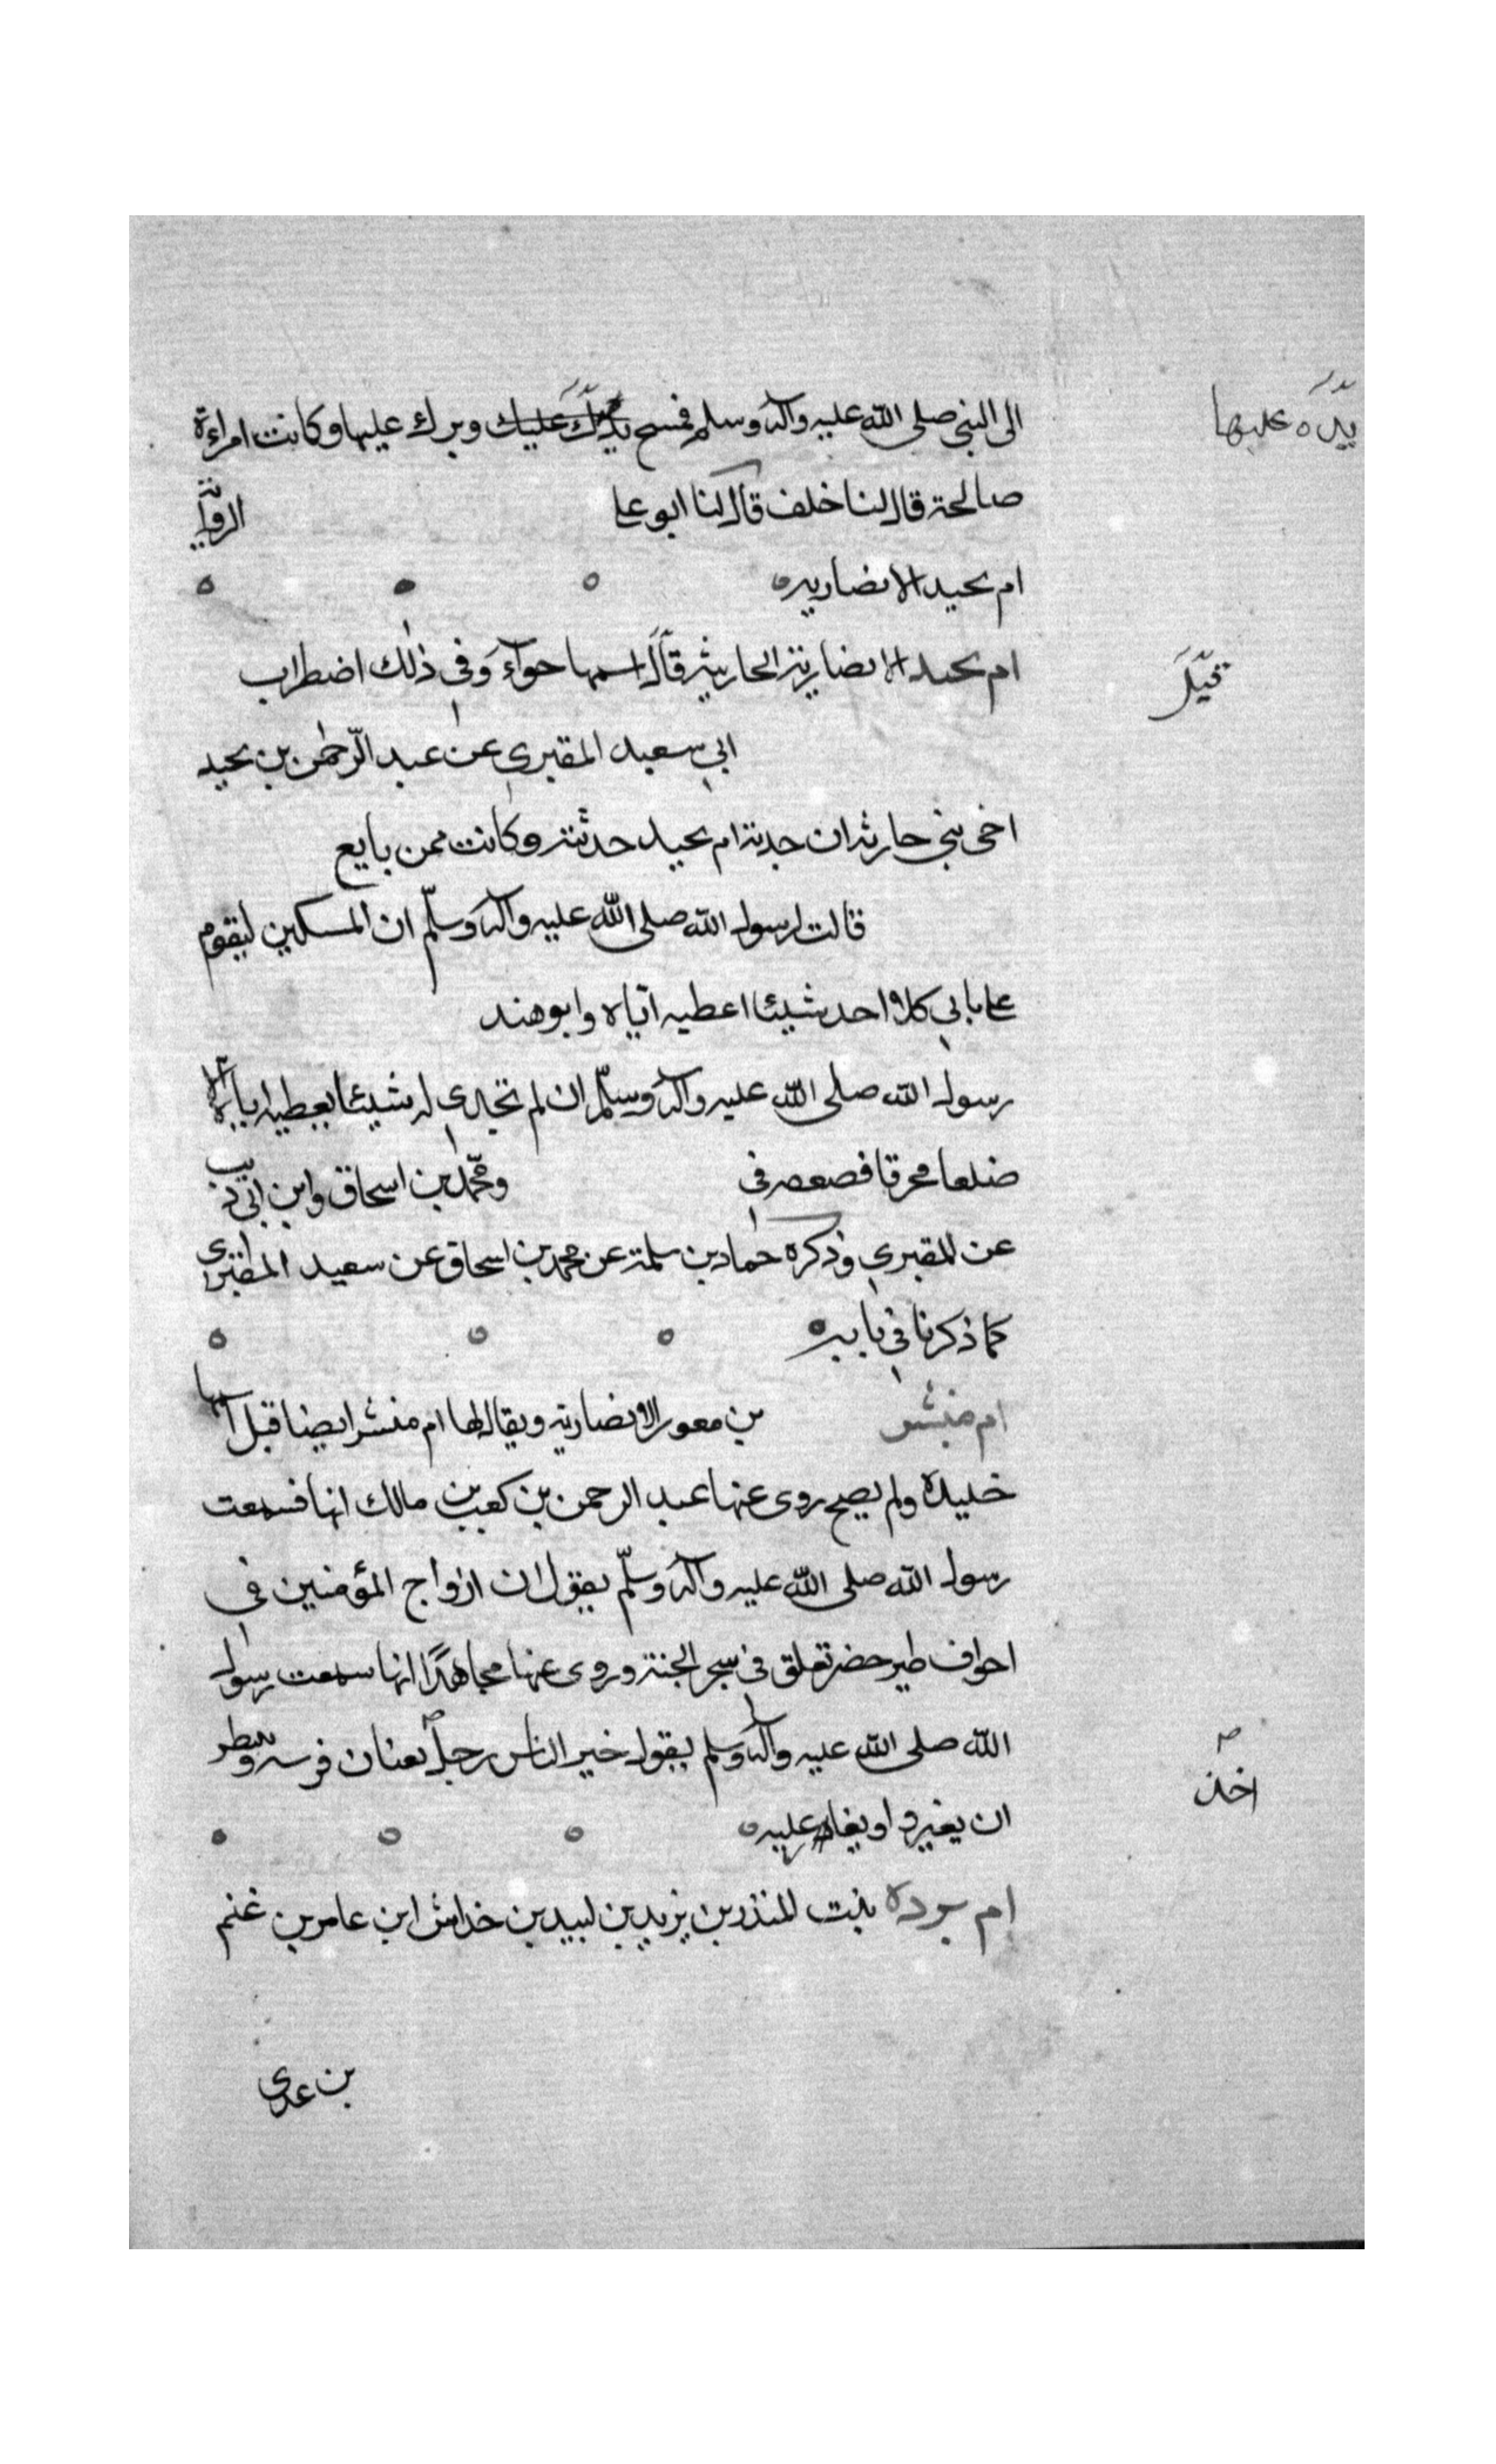 الى النبي صلى الله عليه وآله وسلم فمسح يدك عليك وبرك عليها وكانت امراءة
يده عليها
صالحة قال لنا خلف قال لنا ابو على
ام بجيد الانصاريه
ام بجيد الانصارية الحارثية قال اسمها حواء وفي ذلك اضطراب
قيل
ابي سعيد المقبري عن عبد الرحمن بن بجيد
اخى بني حارثة ان جدته ام بجيد حدثته وكانت ممن بايع
قالت لرسول الله صلى الله عليه وآله وسلم ان المسكين ليقوم
على بابي كلا واحد شيئا اعطيه اياه وابو هند
رسول الله صلى الله عليه وآله وسلم ان لم تجدي له شيئا يعطيه اياه الا
ضلعا محرقا فصعه في ومحمد بن اسحاق وابن ابي ذيب
عن المقبري وذكره حماد بن سلمة عن محمد بن اسحاق عن سعيد المقبري
كما ذكرنا في بابه
ام مبشر بن معور الانصارية ويقال لها ام منشر ايضا قبل اسمها
خليدة ولم يصح روى عنها عبد الرحمن بن كعب بن مالك انها فسمعت
رسول الله صلى الله عليه وآله وسلم يقول ان ازواج المؤمنين في
اجواف طير خضر تعلق في سجر الجنة وروى عنها مجاهدا انها سمعت رسول
الله صلى الله عليه وآله وسلم يقول خير الناس رجل بعنان فرسه
اخذ
ان يغير او يغار عليه
ام بردة بنت المنذر بن يزيد بن لبيد بن خداش ابن عامر بن غنم
بن عدى